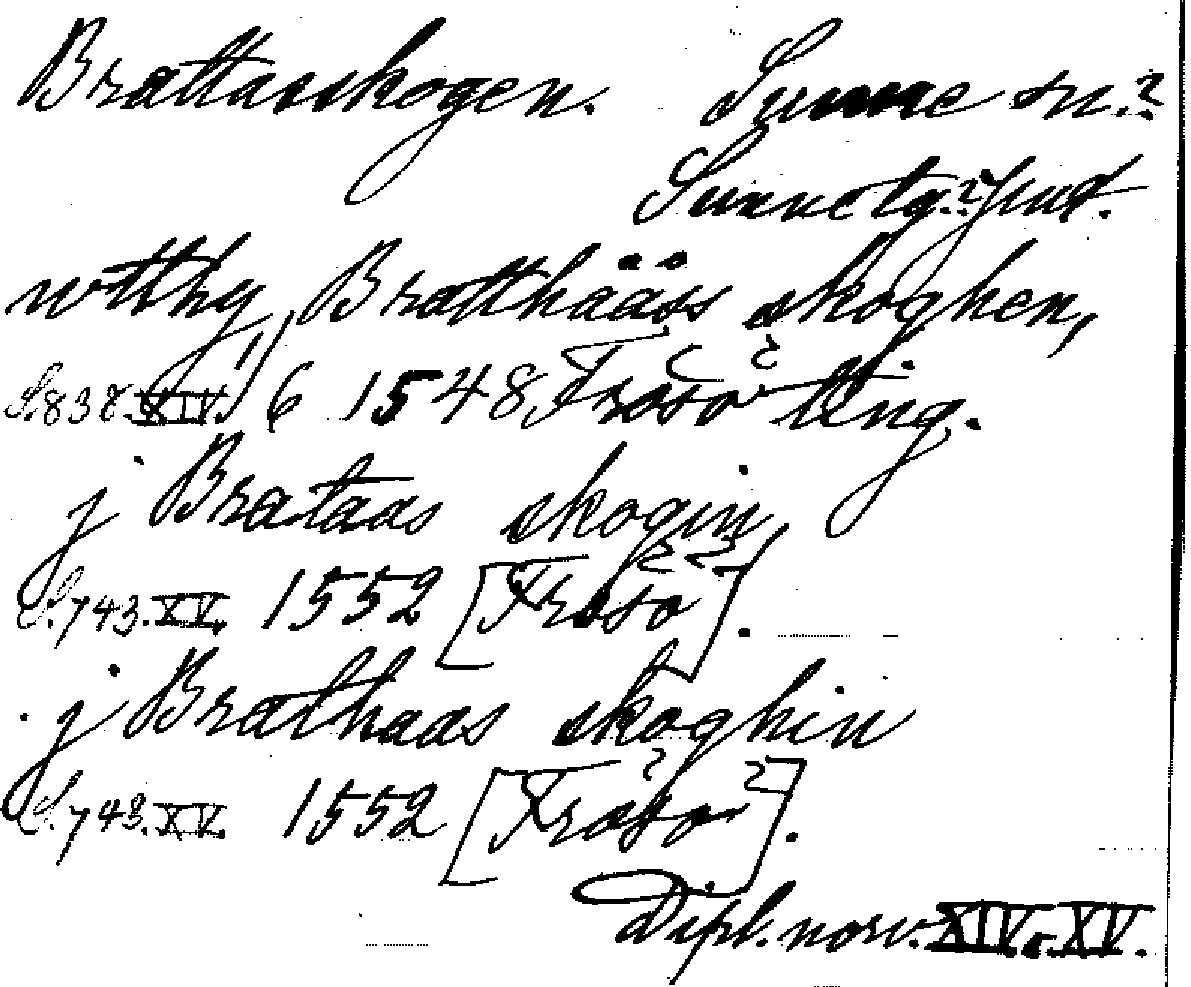 Brattasskogen. Sunne sn.?
Sunne tg.? Jmtl.
wtthy Bratthååss skoghen,
S. 838. XIV. 16/6 1548 Frösö ting.
j Brataas skogin,
S. 743. XV. 1552 [Frösö].
j Brathaas skoghin
S. 743. XV. 1552 [Frösö].
Dipl. norv. XIV o. XV.